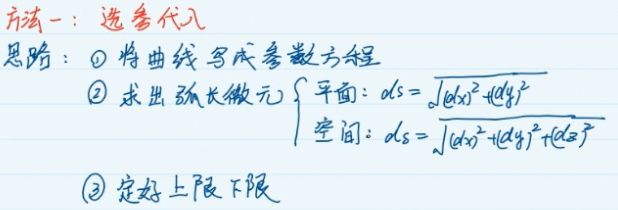 方法一：选参代入
思路：① 将曲线写成参数方程
② 求出弧长微元{ 平面：ds=√((dx)²+(dy)²)
空间：ds=√((dx)²+(dy)²+(dz)²)
③ 定好上限下限